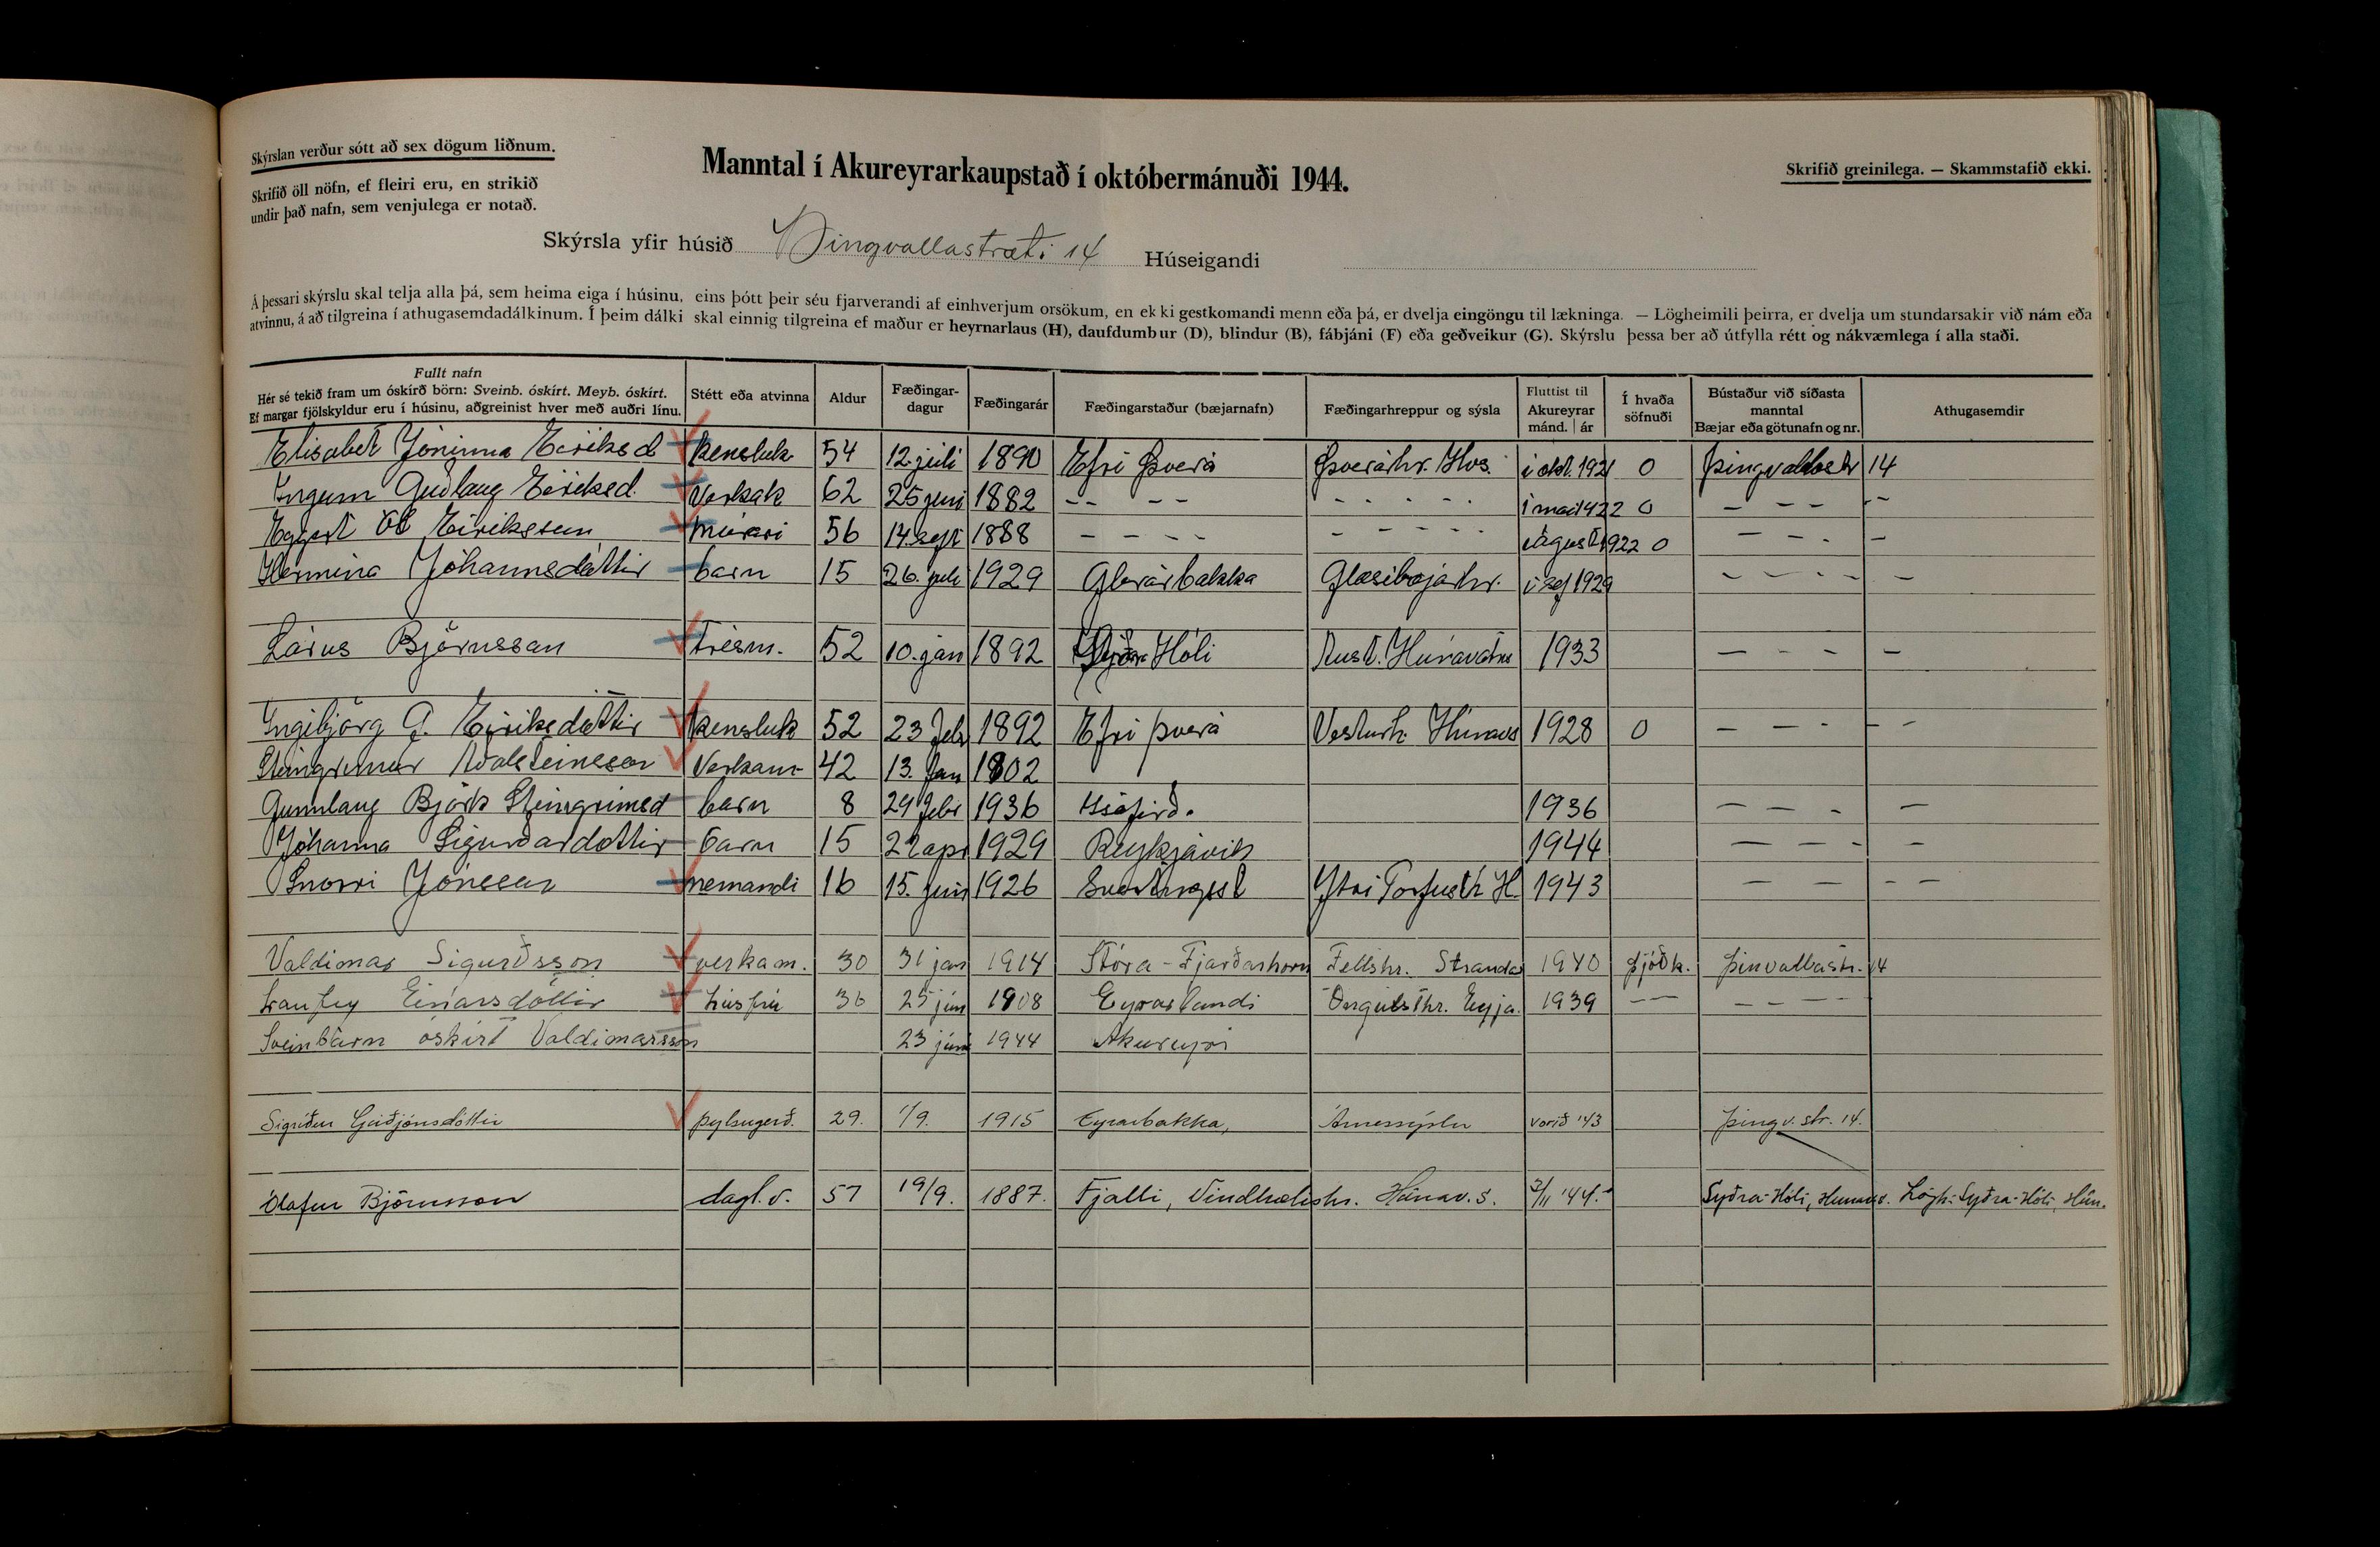 Skýrslan verður sótt að sex dögum liðnum.
Skrifið öll nöfn, ef fleiri eru, en strikið
undir það nafn, sem venjulega er notað.
Manntal í Akureyrarkaupstað í októbermánuði 1944.
Skrifið greinilega. — Skammstafið ekki.
Skýrsla yfir húsið Þingvallastræti 14 Húseigandi
Á þessari skýrslu skal telja alla þá, sem heima eiga í húsinu, eins þótt þeir séu fjarverandi af einhverjum orsökum, en ekki gestkomandi menn eða þá, er dvelja eingöngu til lækninga. — Lögheimili þeirra, er dvelja um stundarsakir við nám eða
atvinnu, á að tilgreina í athugasemdadálkinum. Í þeim dálki skal einnig tilgreina ef maður er heyrnarlaus (H), daufdumbur (D), blindur (B), fábjáni (F) eða geðveikur (G). Skýrslu þessa ber að útfylla rétt og nákvæmlega í alla staði.
Fullt nafn
Hér sé tekið fram um óskírð börn: Sveinb. óskírt. Meyb. óskírt.
Ef margar fjölskyldur eru í húsinu, aðgreinist hver með auðri línu.
Stétt eða atvinna
Aldur
Fæðingar-
dagur
Fæðingarár
Fæðingarstaður (bæjarnafn)
Fæðingarhreppur og sýsla
Fluttist til
Akureyrar
mánd. | ár
Í hvaða
söfnuði
Bústaður við síðasta
manntal
Bæjar eða götunafn og nr.
Athugasemdir
Elisabet Jóninna Eiriksd kensluk 54 12. júlí 1890 Efri Þverá Þverárhr. Hvs. í okt. 1921 0 Þingvallastr 14
Ingunn Guðlaug Eiríksd. Verkak 62 25 juni 1882 -- -- - - - - - í mai 1922 0 - - - --
Eggert Ól Eiriksson múrari 56 14. sept 1888 - - - - - - - - ágúst 1922 0 - - - -
Hermina Jóhannsdóttir barn 15 26. juli 1929 Glerárbakka Glæsibæjarhr. 1929 - - - - -
Lárus Björnsson Trésm. 52 10. jan 1892 Hóli Aust. Húnavatns 1933 - - - -
Ingibjörg G. Eiriksdóttir kensluk 52 23 febr 1892 Efri Þverá Vesturh. Húnavs 1928 0 - - - - -
Steingrimur Aðalsteinsson Verkam 42 13. Jan 1902
Gunnlaug Björk Steingrimsd barn 8 29 febr 1936 Isafirð. 1936 - - - -
Jóhanna Sigurðardottir barn 15 1929 Reykjavik 1944 - - - -
Snorri Jónsson nemandi 16 15. juni 1926 Ytri Torfust.h H. 1943 - - - -
Valdimar Sigurðsson verkam. 30 31 jan 1914 Stóra-Fjarðarhorn Fellshr. Stranda 1940 þjóðk. Þinvallastr. 14
Einarsdóttir húsfrú 36 25 jún 1908 Eyrarlandi Öngulsthr. Eyja. 1939 -- - - - -
Sveinbarn óskírt Valdimarsson 23 júní 1944 Akureyri
Sigríður Guðjónsdóttir pylsugerð. 29. 1/9. 1915 Eyrarbakka, Árnessýslu Vorið '43 Þingv. str. 14.
Ólafur Björnsson dagl.v. 57 19/9. 1887. Fjalli, Vindhælishr. Húnav.s. 3/11 '44. Syðra-Hóli, Húnav. Lögh. Syðra-Hóli, Hún.